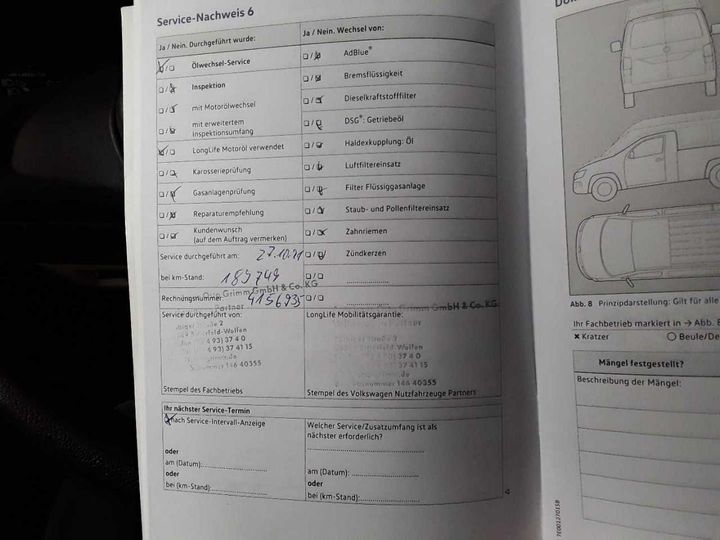 Service-Nachweis 6
Ja / Nein. Durchgeführt wurde:
Ölwechsel-Service
Inspektion
mit Motorölwechsel
mit erweitertem
Inspektionsumfang
LongLife Motoröl verwendet
Karosserieprüfung
Gasanlagenprüfung
Reparaturempfehlung
Kundenwunsch
(auf dem Auftrag vermerken)
Service durchgeführt am: 27.10.21
bei km-Stand: 189749
Rechnungsnummer: 4156935
Ja / Nein. Wechsel von:
AdBlue®
Bremsflüssigkeit
Dieselkraftstofffilter
DSG®: Getriebeöl
Haldexkupplung: Öl
Luftfiltereinsatz
Filter Flüssiggasanlage
Staub- und Pollenfiltereinsatz
Zahnriemen
Zündkerzen
Grimm GmbH & Co. KG
Partner
Service durchgeführt von:
4 93) 37 4 0
4 93) 37 41 15
146 40355
Stempel des Fachbetriebs
Grimm GmbH & Co. KG
LongLife Mobilitätsgarantie:
4 93) 37 4 0
4 93) 37 41 15
146 40355
Stempel des Volkswagen Nutzfahrzeuge Partners
Ihr nächster Service-Termin
nach Service-Intervall-Anzeige
oder
am (Datum):
oder
bei (km-Stand):
Welcher Service/Zusatzumfang ist als
nächster erforderlich?
am (Datum):
oder
bei (km-Stand):
Abb. 8 Prinzipdarstellung: Gilt für alle
Ihr Fachbetrieb markiert in → Abb. 8
× Kratzer
Beule/De
Mängel festgestellt?
Beschreibung der Mängel: